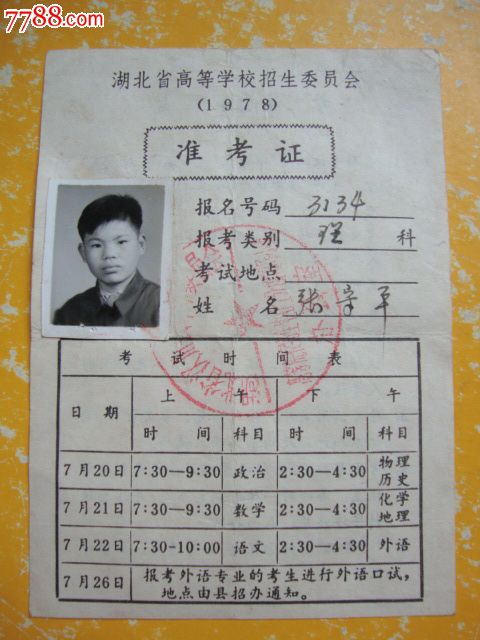 7788.com
湖北省高等学校招生委员会
(1978)
准考证
报名号码 3134
报考类别 理 科
考试地点
姓 名 张 平
考试时间表
日期 上午 下午
时间 科目 时间 科目
7月20日 7:30—9:30 政治 2:30—4:30 物理 历史
7月21日 7:30—9:30 数学 2:30—4:30 化学 地理
7月22日 7:30-10:00 语文 2:30—4:30 外语
7月26日 报考外语专业的考生进行外语口试,
地点由县招办通知。